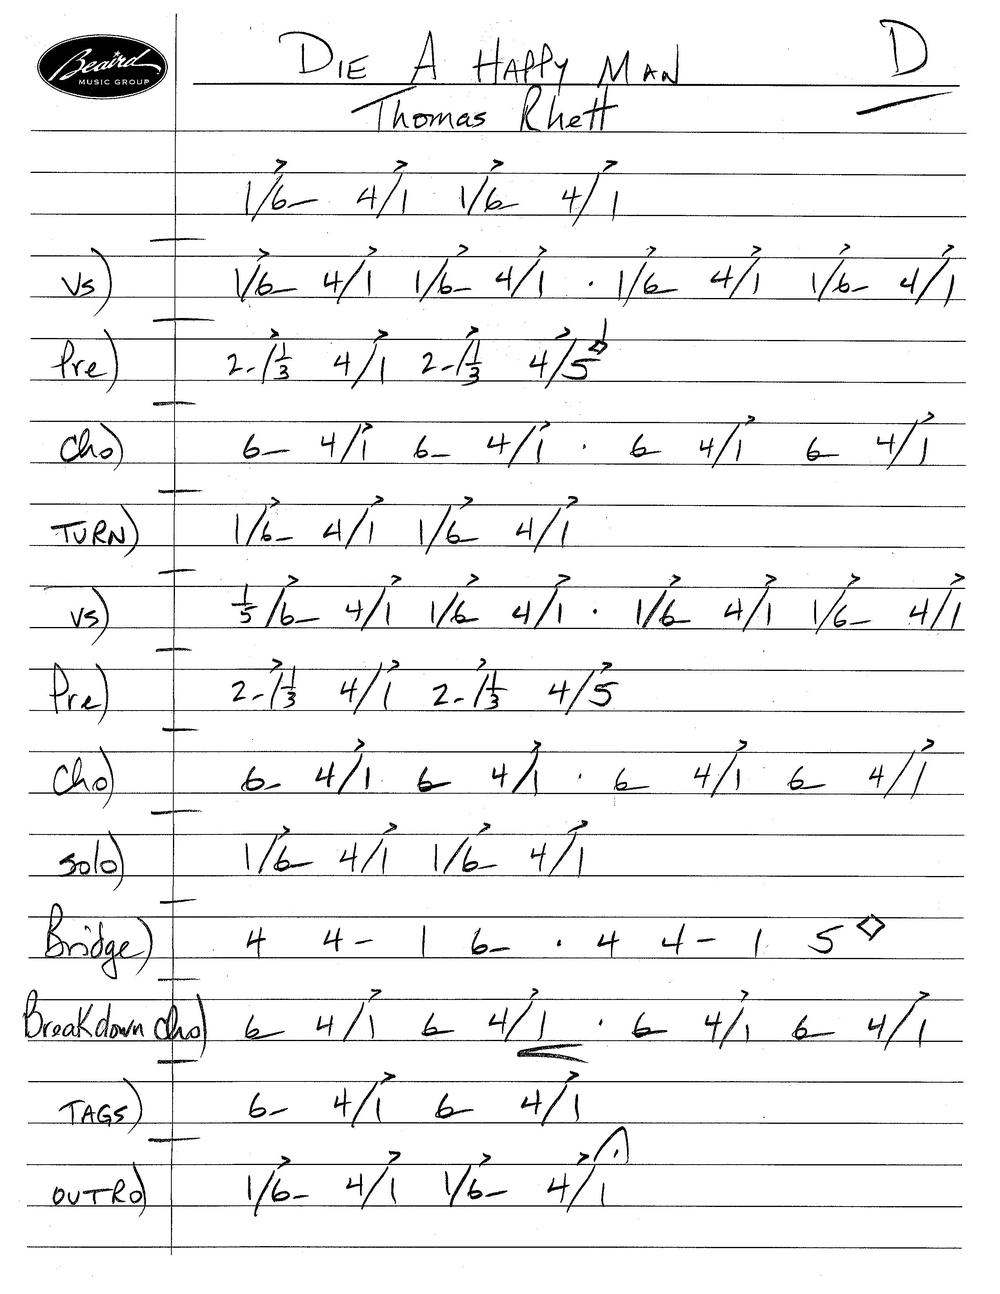 Beaird
MUSIC GROUP
DIE A HAPPY MAN D
Thomas Rhett
1/6- 4/1 1/6- 4/1
Vs) 1/6- 4/1 1/6- 4/1 . 1/6- 4/1 1/6- 4/1
Pre) 2-/1/3 4/1 2-/1/3 4/5
Cho) 6- 4/1 6- 4/1 . 6- 4/1 6- 4/1
TURN) 1/6- 4/1 1/6- 4/1
Vs) 1/5/6- 4/1 1/6- 4/1 . 1/6- 4/1 1/6- 4/1
Pre) 2-/1/3 4/1 2-/1/3 4/5
Cho) 6- 4/1 6- 4/1 . 6- 4/1 6- 4/1
Solo) 1/6- 4/1 1/6- 4/1
Bridge) 4 4- 1 6- . 4 4- 1 5 ◇
Breakdown Cho) 6- 4/1 6- 4/1 . 6- 4/1 6- 4/1
TAGS) 6- 4/1 6- 4/1
OUTRO) 1/6- 4/1 1/6- 4/1